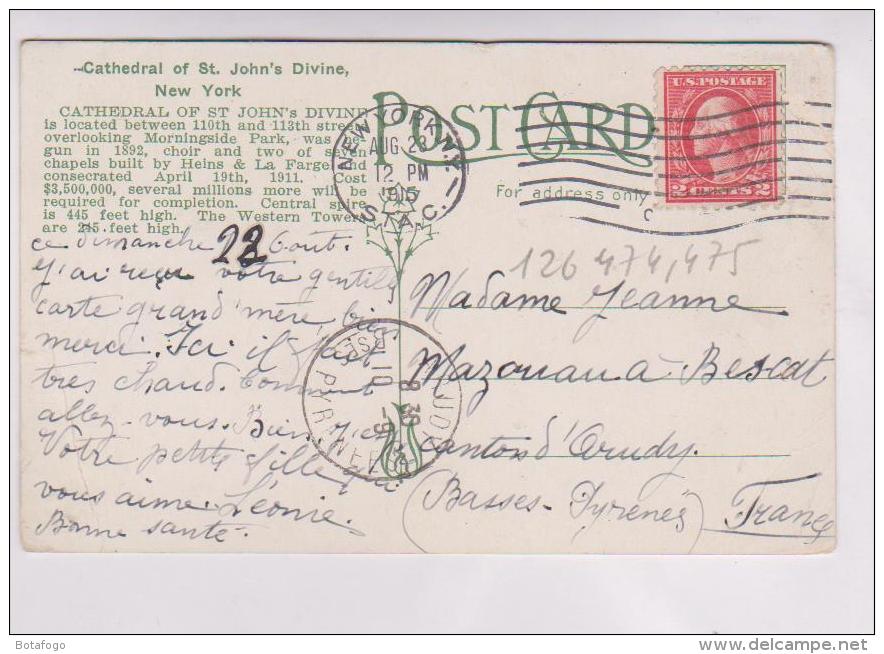 Cathedral of St. John's Divine,
New York
CATHEDRAL OF ST JOHN'S DIVINE
is located between 110th and 113th streets
overlooking Morningside Park, was be-
gun in 1892, choir and two of seven
chapels built by Heins & La Farge and
consecrated April 19th, 1911. Cost
$3,500,000, several millions more will be
required for completion. Central spire
is 445 feet high. The Western Towers
are 245 feet high.
POST CARD
For address only
NEW YORK, N.Y.
AUG 23
12 PM
1915
STA. C.
U.S. POSTAGE
2 CENTS 2
ce dimanche 22 Août.
J'ai reçu votre gentille
carte grand'mère, bien
merci. Ici il fait
très chaud. Comment
allez-vous. Bien, j'esp
Votre petite fille qui
vous aime. Léonie.
Bonne santé.
126 474,475
Madame Jeanne
Mazouau à Bescat
canton d'Arudy.
(Basses-Pyrenées) France
ARUDY
8 30
10 -9
Botafogo
www.delcampe.net